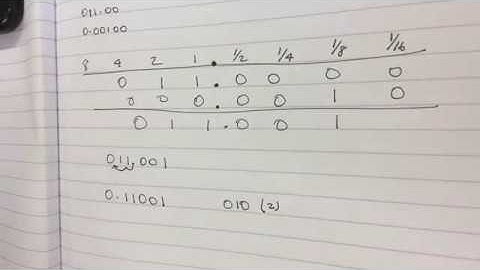 011.00
0.00100
8 4 2 1 . 1/2 1/4 1/8 1/16
0 1 1 . 0 0 0 0
0 0 0 . 0 0 1 0
0 1 1 . 0 0 1
011.001
0.11001 010 (2)